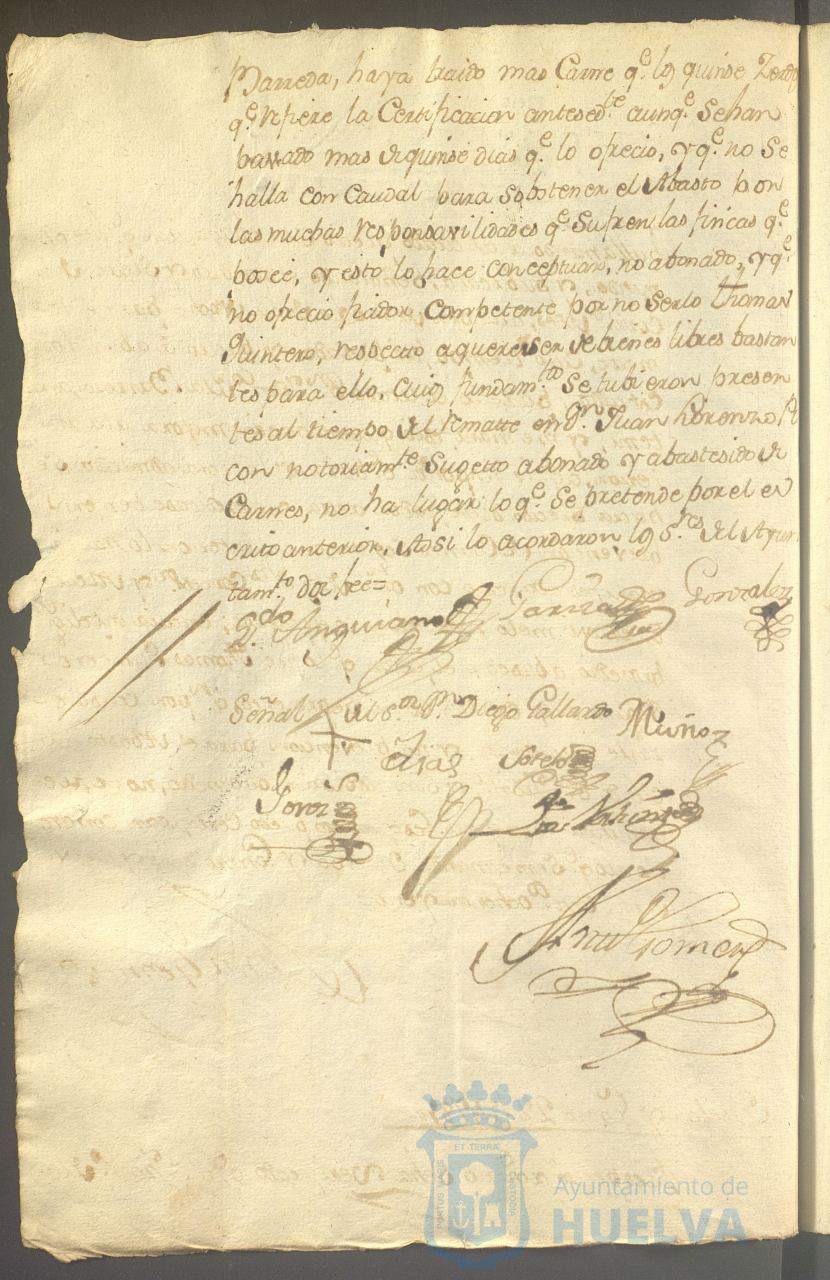 Parreda, haya traido mas Carne q.e los quinse Zerdo
q.e refiere la Certificacion antesed.te aunq.e se han
passado mas de quinse dias q.e lo ofrecio, y q.e no se
halla con Caudal para sobstener el Abasto por
las muchas responsavilidades q.e sufren las fincas q.e
posee, y esto lo hace conceptuar, no abonado, y q.e
no ofrecio fiador competente por no serlo thomas
Quintero, respecto a querer ser de bienes libres bastan
tes para ello, cuios fundam.tos se tubieron presen
tes al tiempo del rematte en D.n Juan Lorenzo
con notoriam.te sugetto abonado y abastesido de
Carnes, no ha lugar lo q.e se pretende por el es
crito anterior. Assi lo acordaron los S.res del Ayun
tam.to doi fee=
L.do Anguiano Garzia Gonzalez
Señal del S.or D.n Diego Gallardo Muñoz
Dias Sotelo
Gomez
ET TERRA
PORTUS MARIS
CUSTODIA
Ayuntamiento de
HUELVA